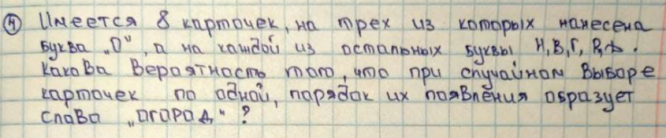 ④ Имеется 8 карточек, на трех из которых нанесена
буква "О", а на каждой из остальных буквы Н, В, Г, Р, Д.
Какова вероятность того, что при случайном выборе
карточек по одной, порядок их появления образует
слова "ОГОРОД"?